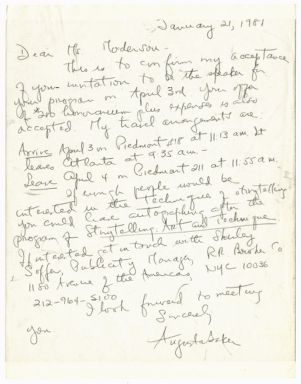 January 21, 1981
Dear Ms Moderson -
This is to confirm my acceptance
of your invitation to be the speaker for
your program on April 3rd. Your offer
of $200 honorarium plus expenses is also
accepted. My travel arrangements are:
Arrive April 3 on Piedmont 518 at 11:13 a.m. It
leaves Atlanta at 9:35 a.m. -
Leave April 4 on Piedmont 211 at 11:55 a.m.
If enough people would be
interested in the techniques of storytelling
you could have autographing after the
program of Storytelling: Art and Technique
If interested get in touch with Shirley
Soffer, Publicity Manager, R.R. Bowker Co
1180 Avenue of the Americas, NYC 10036
212-764-5100
I look forward to meeting
you
Sincerely
Augusta Baker